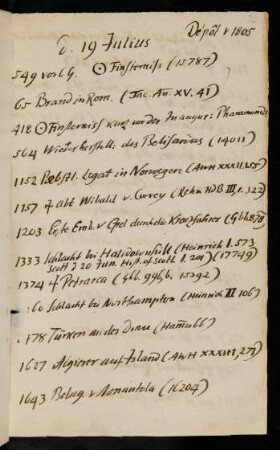 Dépôt v 1805
d. 19 Julius
549 vor Chr. ☉ Finsterniss (15787)
65 Brand in Rom. (Tac. An. XV. 41)
418 ☉ Finsterniss kurz vor der Inaugur: Pharamunds
564 Wiederherstell. des Belisarius (14011)
1152 Päbstl. Legat in Norwegen (AWH XXXIII.
1157 † Abt Wibald v. Corvey (Rehm HDB III. 1. 322)
1203 Erste Erob. v. Cpel durch die Kreuzfahrer (Gbb
1333 Schlacht bei Halidownhill (Heinrich I. 573
Scott d 20 Jun. Hist. of Scotl. I. 201) (17749)
1374 † Petrarca (Gbb. 946b. 15392)
60 Schlacht bei Northampton (Heinrich II 106)
78 Türken an der Drau
1627 Algierer auf Island (AWH XXXIII, 271)
1643 Belag. v. Nonantola (16204)